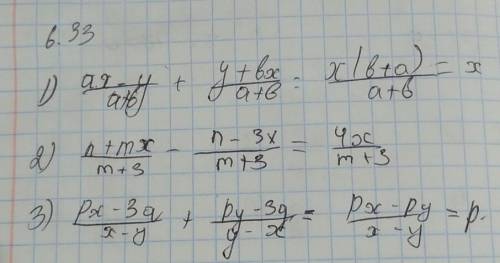 6.33
1) (ax - y)/(a+b) + (y + bx)/(a+b) = x(b+a)/(a+b) = x
2) (n + mx)/(m+3) - (n - 3x)/(m+3) = 4x/(m+3)
3) (px - 3q)/(x - y) + (py - 3q)/(y - x) = (px - py)/(x - y) = p.